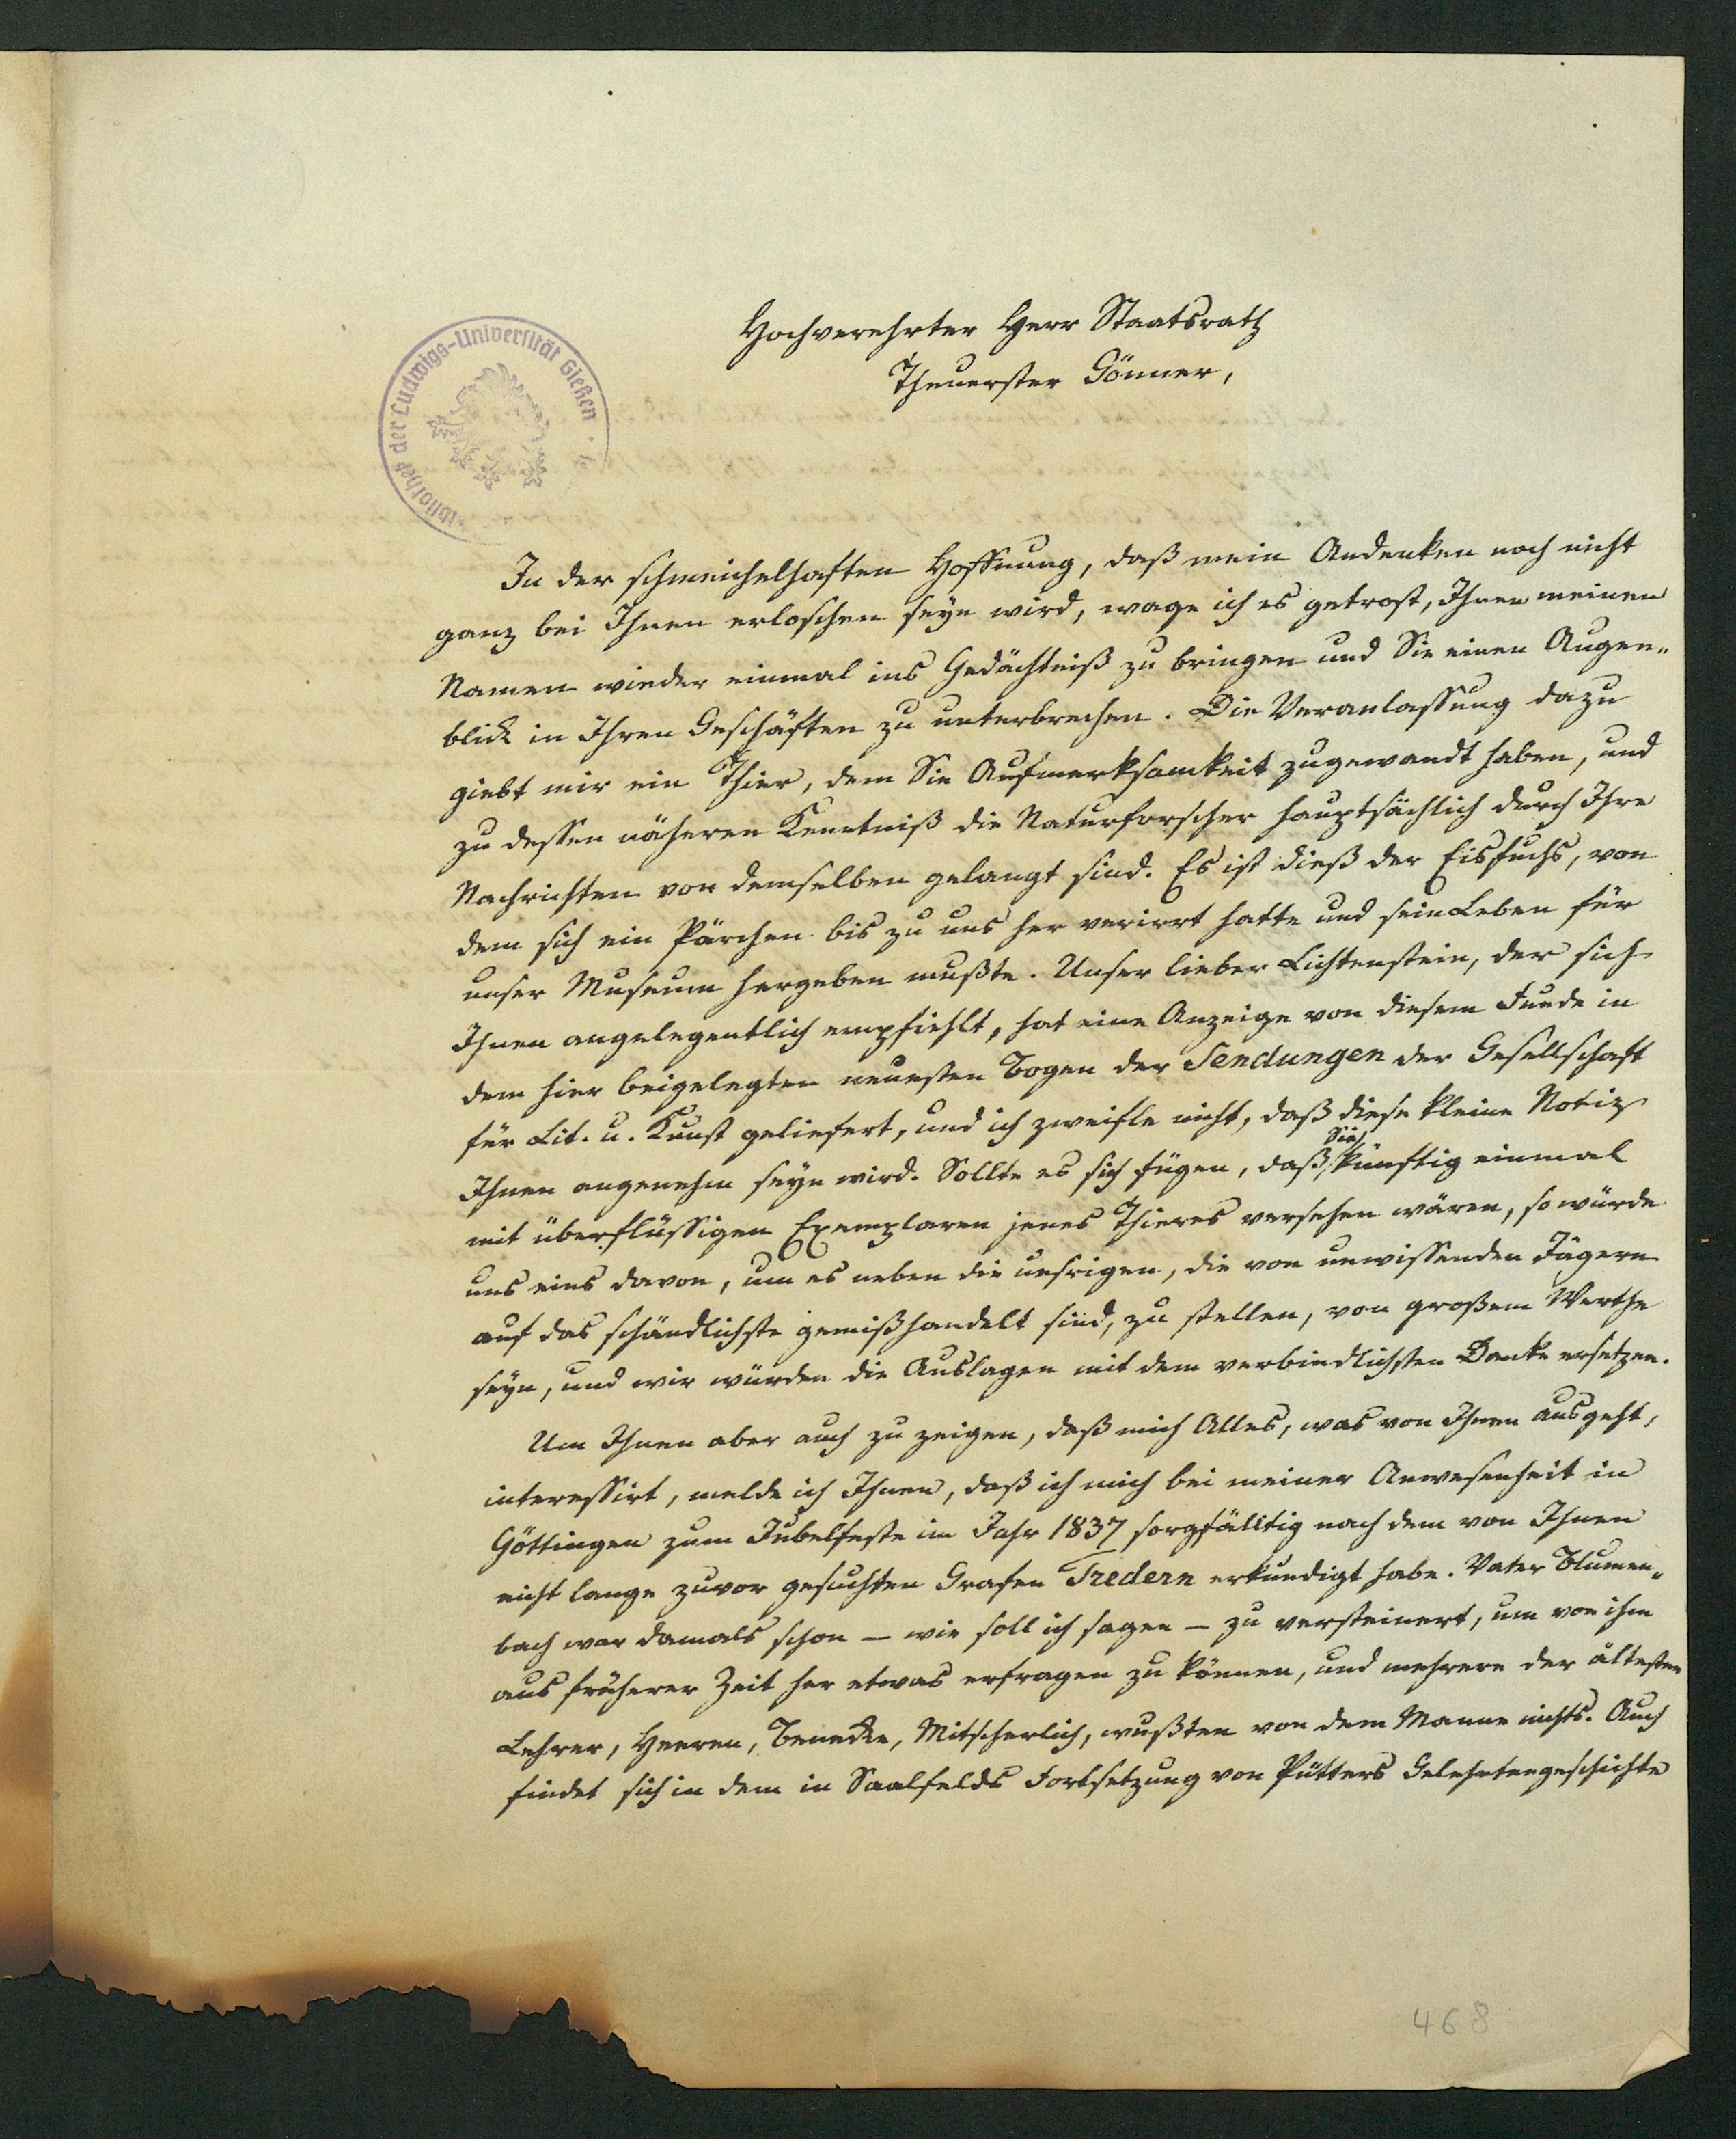 Bibliothek der Ludwigs-Universität Gießen
Hochverehrter Herr Staatsrath
Theuerster Gönner,
In der schmeichelhaften Hoffnung, daß mein Andenken noch nicht
ganz bei Ihnen erloschen seyn wird, wage ich es getrost, Ihnen meinen
Namen wieder einmal ins Gedächtniß zu bringen und Sie einen Augen-
blick in Ihren Geschäften zu unterbrechen. Die Veranlassung dazu
giebt mir ein Thier, dem Sie Aufmerksamkeit zugewandt haben, und
zu dessen näheren Kenntniß die Naturforscher hauptsächlich durch Ihre
Nachrichten von demselben gelangt sind. Es ist dieß der Eisfuchs, von
dem sich ein Pärchen bis zu uns her verirrt hatte und sein Leben für
unser Museum hergeben mußte. Unser lieber Lichtenstein, der sich
Ihnen angelegentlich empfiehlt, hat eine Anzeige von diesem Funde in
dem hier beigelegten neuesten Bogen der Sendungen der Gesellschaft
für Lit. u. Kunst geliefert, und ich zweifle nicht, daß diese kleine Notiz
Ihnen angenehm seyn wird. Sollte es sich fügen, daß Sie künftig einmal
mit überflüssigen Exemplaren jenes Thieres versehen wären, so würde
uns eins davon, um es neben die unsrigen, die von unwissenden Jägern
auf das schändlichste gemißhandelt sind, zu stellen, von großem Werthe
seyn, und wir würden die Auslagen mit dem verbindlichsten Danke ersetzen.
Um Ihnen aber auch zu zeigen, daß mich Alles, was von Ihnen ausgeht,
interessirt, melde ich Ihnen, daß ich mich bei meiner Anwesenheit in
Göttingen zum Jubelfeste im Jahr 1837 sorgfältig nach dem von Ihnen
nicht lange zuvor gesuchten Grafen Tredern erkundigt habe. Vater Blumen-
bach war damals schon – wie soll ich sagen – zu versteinert, um von ihm
aus früherer Zeit her etwas erfragen zu können, und mehrere der ältesten
Lehrer, Heeren, Benecke, Mitscherlich, wußten von dem Manne nichts. Auch
findet sich in dem in Saalfelds Fortsetzung von Pütters Gelehrtengeschichte
468